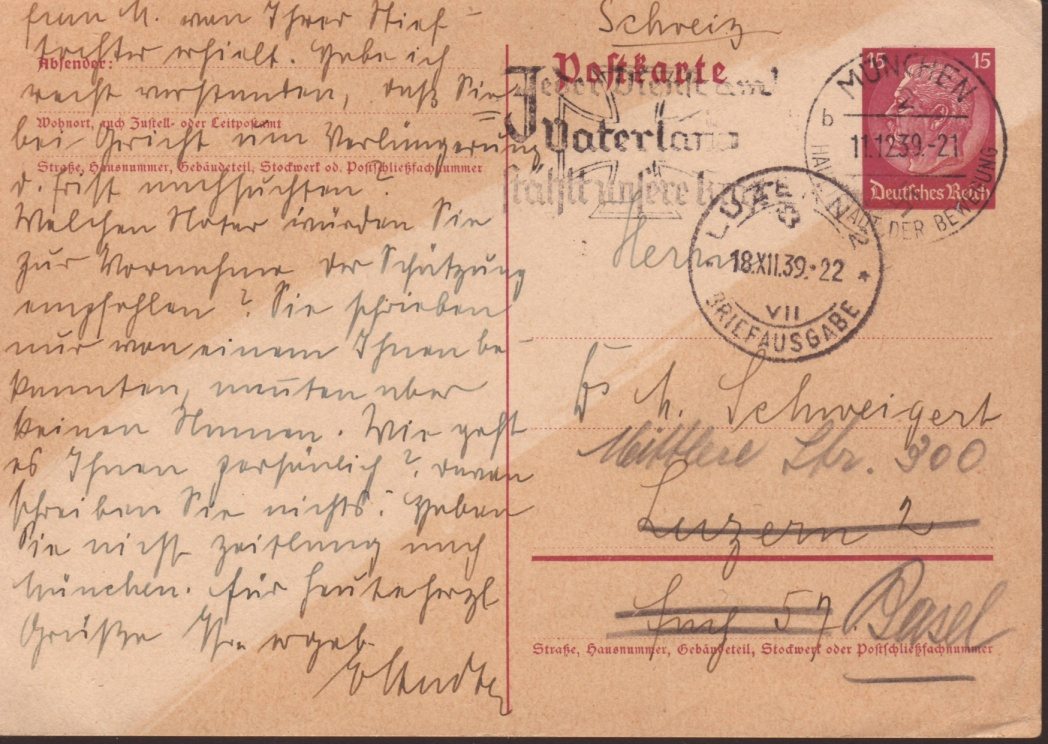 frau M. von Ihrer Stief-
tochter erhielt. Habe ich
recht verstanden, daß Sie
bei Gericht um Verlängerung
d. Frist nachsuchten?
Welchen Notar würden Sie
zur Vornahme der Schätzung
empfehlen? Sie schrieben
nur von einem Ihnen be-
kannten, nannten aber
keinen Namen. Wie geht
es Ihnen persönlich? davon
schreiben Sie nichts. Haben
Sie nicht Zeitlang nach
München. Für heute herzl
Grüße Ihr ergeb.
Absender:
Wohnort, auch Zustell- oder Leitpostamt
Straße, Hausnummer, Gebäudeteil, Stockwerk od. Postschließfachnummer
Schweiz
Postkarte
Jeder Dienst am
Vaterland
stählt unsere
MÜNCHEN
b
11.12.39.-21
HAUPTSTADT DER BEWEGUNG
15 15
Deutsches Reich
LUZERN 2
18.XII.39.-22
VII
BRIEFAUSGABE
Herrn
M. Schweigert
Mittlere Str. 300
Luzern 2
Fach 57 Basel
Straße, Hausnummer, Gebäudeteil, Stockwerk oder Postschließfachnummer